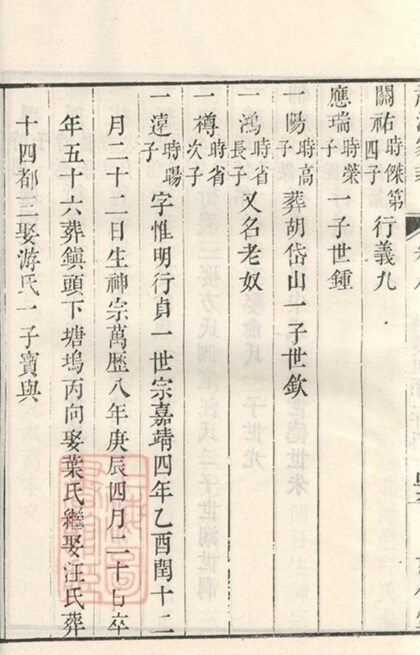 關祐時傑第四子行義九
應瑞時榮子一子世鍾
一陽時高子葬胡岱山一子世欽
一鴻時省長子又名老奴
一樽時省次子
一遠時暘子字惟明行貞一世宗嘉靖四年乙酉閏十二
月二十二日生神宗萬歷八年庚辰四月二十七卒
年五十六葬鎮頭下塘塢丙向娶葉氏繼娶汪氏葬
十四都三娶游氏一子寶與